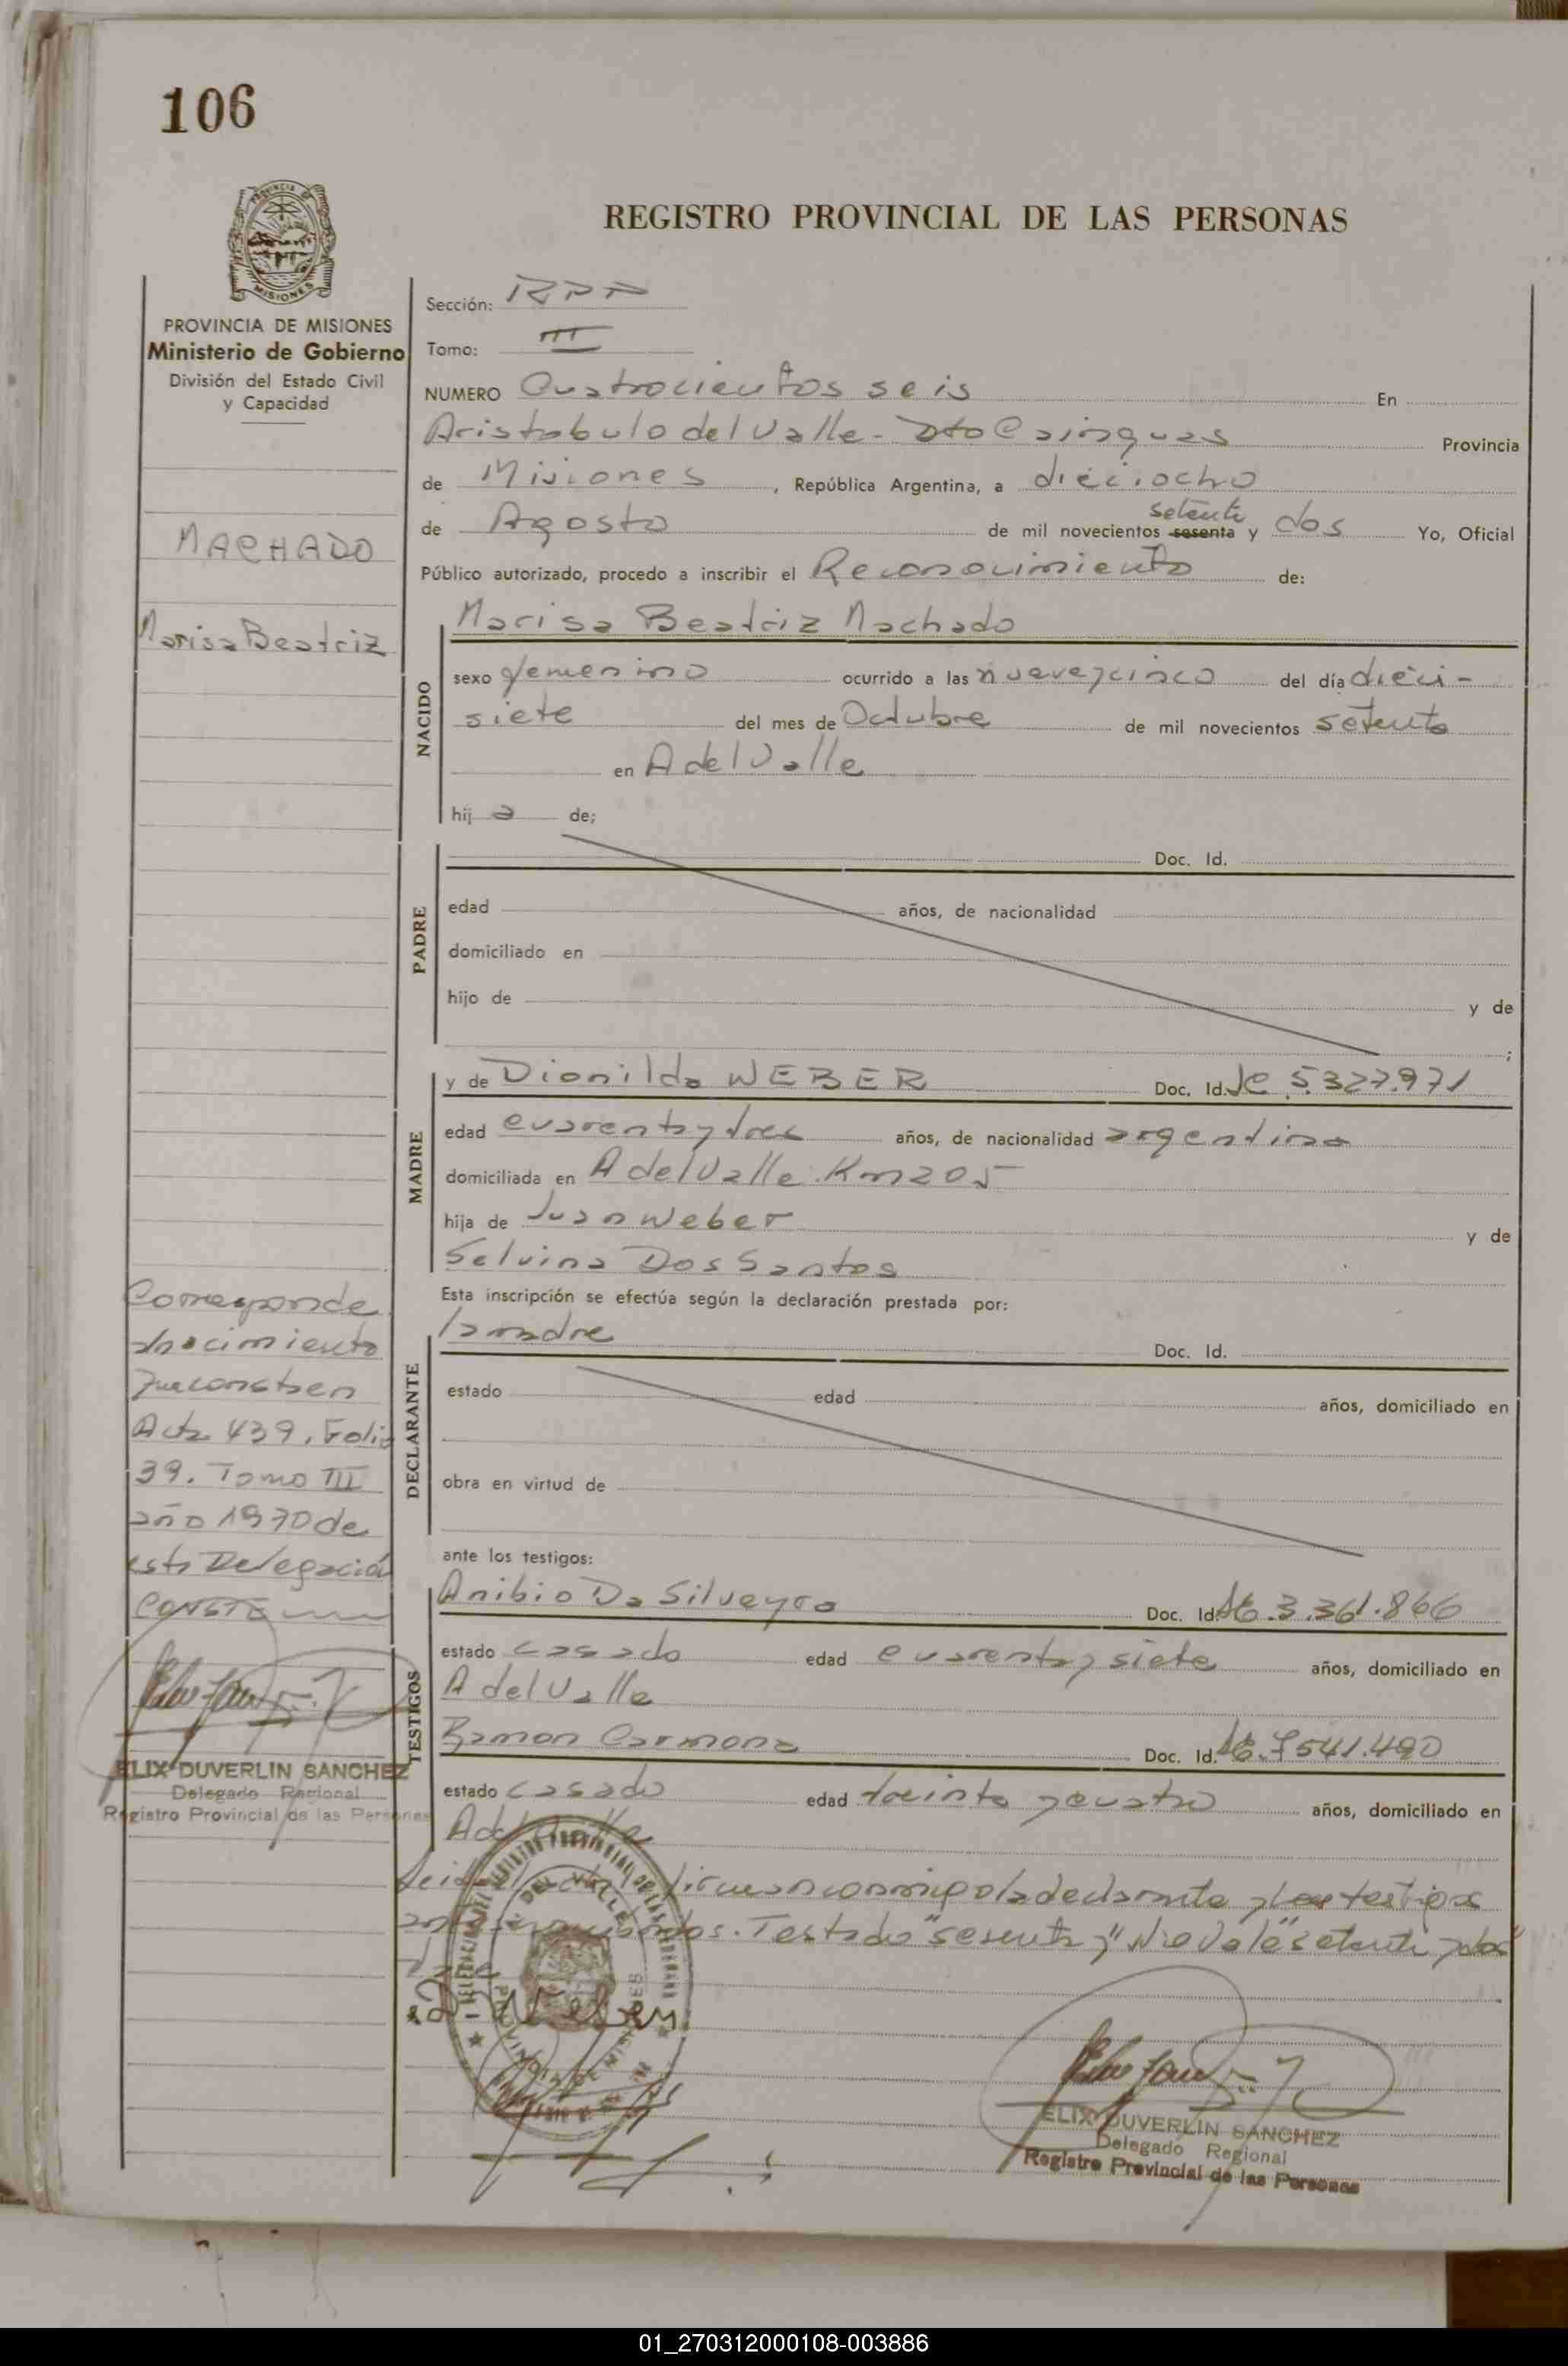 106
PROVINCIA DE MISIONES
Ministerio de Gobierno
División del Estado Civil
y Capacidad
MACHADO
Marisa Beatriz
REGISTRO PROVINCIAL DE LAS PERSONAS
Sección: RPP
Tomo: III
NUMERO Cuatrocientos seis En
Aristobulo del Valle - Dto Cainguas Provincia
de Misiones, República Argentina, a dieciocho
setenta
de Agosto de mil novecientos sesenta y dos Yo, Oficial
Público autorizado, procedo a inscribir el Reconocimiento de:
NACIDO
Marisa Beatriz Machado
sexo femenino ocurrido a las nueve y cinco del día dieci-
siete del mes de Octubre de mil novecientos setenta
en A del Valle
hij a de;
PADRE
Doc. Id.
edad años, de nacionalidad
domiciliado en
hijo de y de
;
MADRE
y de Dionilda WEBER Doc. Id. 5.327.971
edad cuarenta y tres años, de nacionalidad argentina
domiciliada en A del Valle. Km 205
hija de Juan Weber y de
Selvina Dos Santos
Esta inscripción se efectúa según la declaración prestada por:
DECLARANTE
la madre Doc. Id.
estado edad años, domiciliado en
obra en virtud de
ante los testigos:
TESTIGOS
Anibio Da Silveyra Doc. Id. 3.361.866
estado casado edad cuarenta y siete años, domiciliado en
A del Valle
Ramon Carmona Doc. Id. 7541.490
estado casado edad treinta y cuatro años, domiciliado en
A del Valle
firman conmigo la declarante y los testigos
Testado "sesenta y" No Vale "setenta y dos"
Weber
Corresponde
al nacimiento
que consta en
Acta 439, Folio
39. Tomo III
año 1970 de
esta Delegación
CONSTE
ELIX DUVERLIN SANCHEZ
Delegado Regional
Registro Provincial de las Personas
ELIX DUVERLIN SANCHEZ
Delegado Regional
Registro Provincial de las Personas
01_270312000108-003886